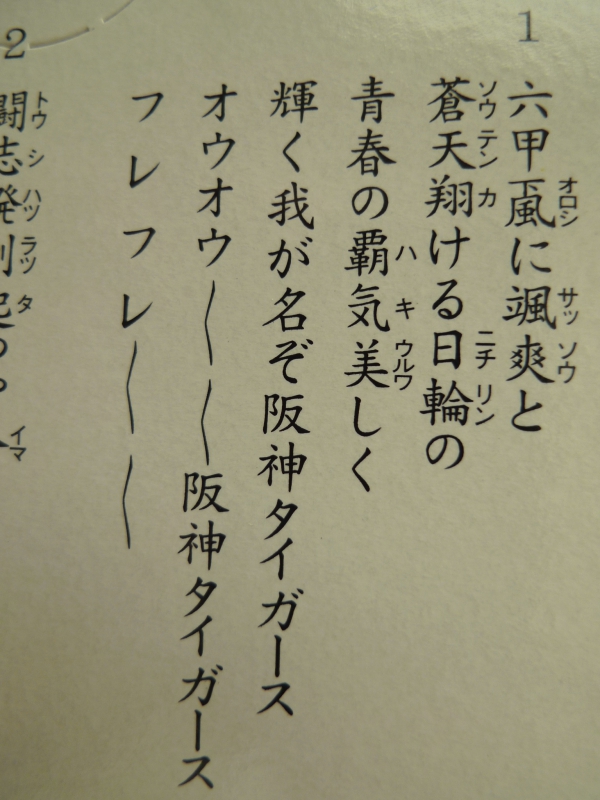 1
六甲颪に颯爽と
オロシ サッ ソウ
蒼天翔ける日輪の
ソウ テン カ ニチ リン
青春の覇気美しく
ハ キ ウルワ
輝く我が名ぞ阪神タイガース
オウオウ〳〵〳〵阪神タイガース
フレフレ〳〵〳〵
2
闘志溌剌起つや
トウ シ ハツ ラツ タ
イマ